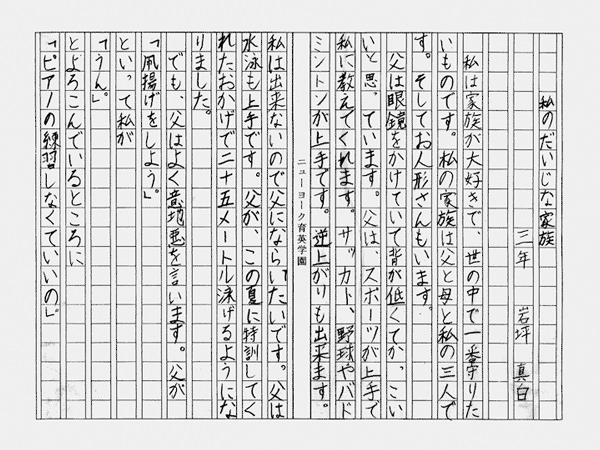 私のだいじな家族
三年 岩坪 真白
私は家族が大好きで、世の中で一番守りた
いものです。私の家族は父と母と私の三人で
す。そしてお人形さんもいます。
父は眼鏡をかけていて背が低くてか、こい
いと思っています。父は、スポーツが上手で
私に教えてくれます。サッカト、野球やバド
ミントンが上手です。逆上がりも出来ます。
ニューヨーク育英学園
私は出来ないので父にならいたいです。父は
水泳も上手です。父が、この夏に特訓してく
れたおかげで二十五メートル泳げるようにな
りました。
でも、父はよく意地悪を言います。父が
「凧揚げをしよう」。
といって私が
「うん」。
とよろこんでいるところに
「ピアノの練習しなくていいの」。